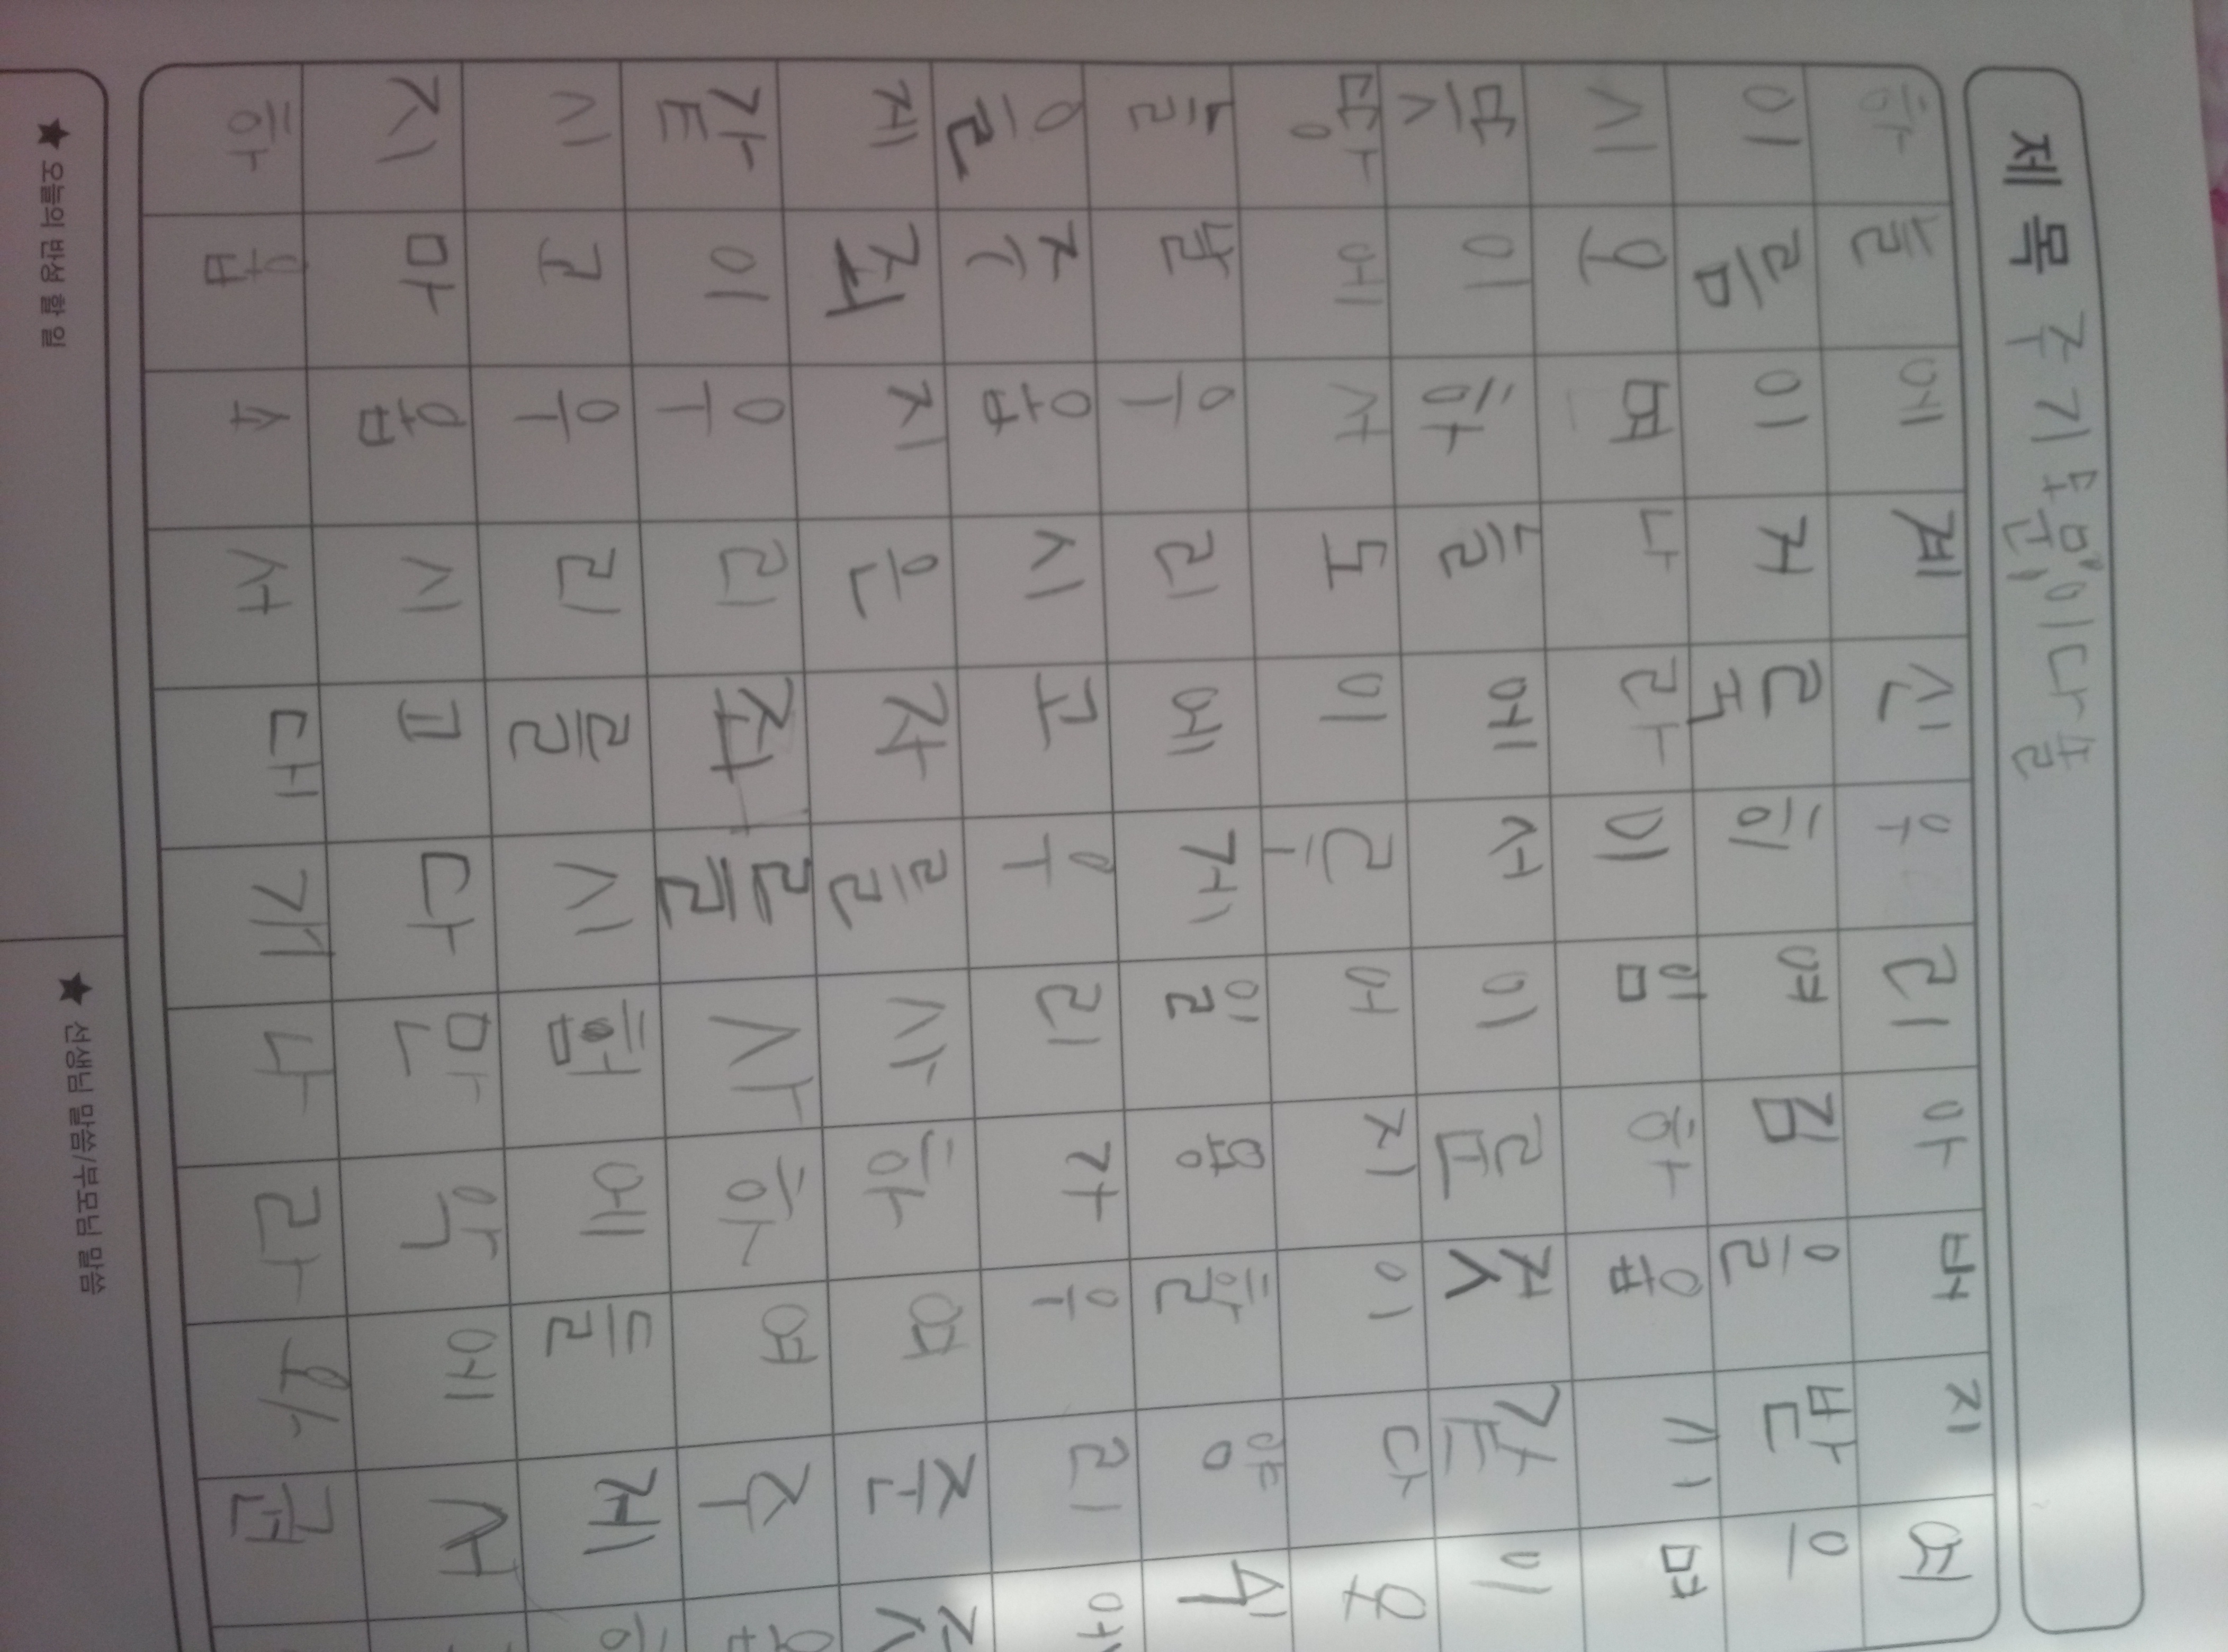 제목 주기도문 이다솔
하늘에계신우리아버지여
이름이거룩히여김을받으
시오며나라이임하옵시며
뜻이하늘에서이룬것같이
땅에서도이루어지이다오
늘날우리에게일용할양식
을주옵시고우리가우리에
게죄지은자를사하여준것
같이우리죄를사하여주옵
시고우리를시험에들게하
지마옵시고다만악에서
하옵소서대개나라와권
★ 오늘의 반성 할 일
★ 선생님 말씀/부모님 말씀